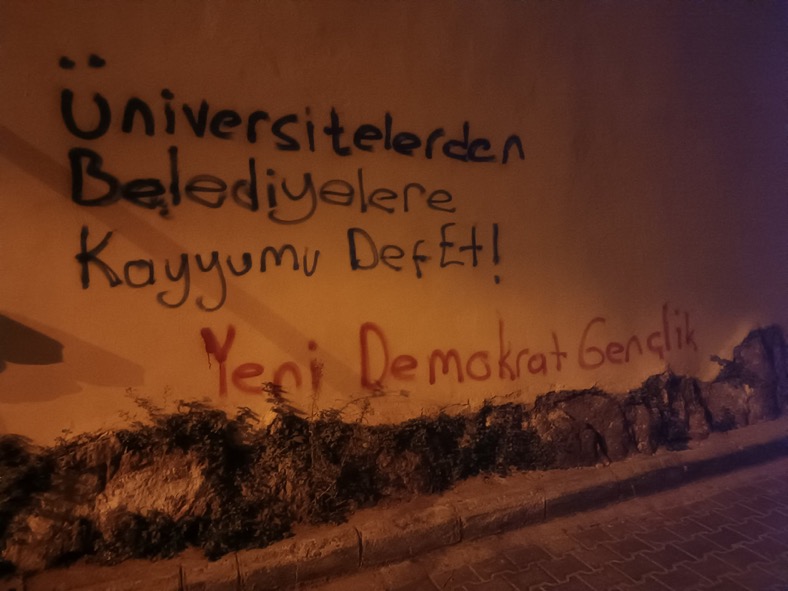 Üniversitelerden
Belediyelere
Kayyumu DefEt!
Yeni Demokrat Gençlik